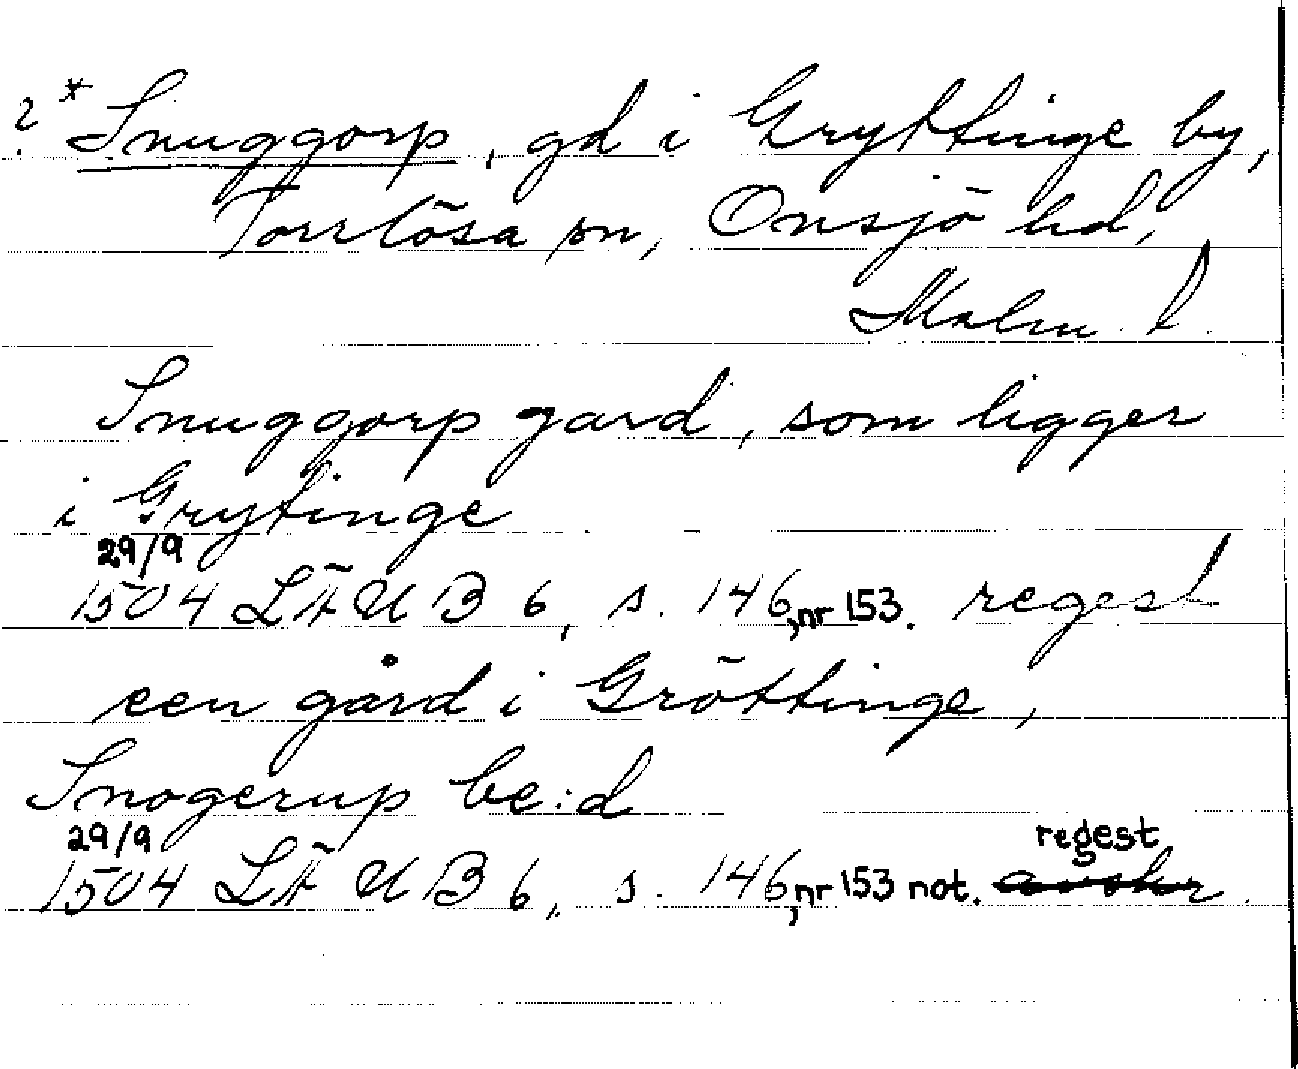 ? * Snuggorp, gd i Gryttinge by,
Torrlösa sn, Onsjö hd,
Malm. l.
Snuggorp gard, som ligger
i Grytinge
29/9
1504 LÄUB 6, s. 146, nr 153. regest
een gård i Gröttinge,
Snogerup be:d
29/9 regest
1504 LÄUB 6, s. 146, nr 153 not.